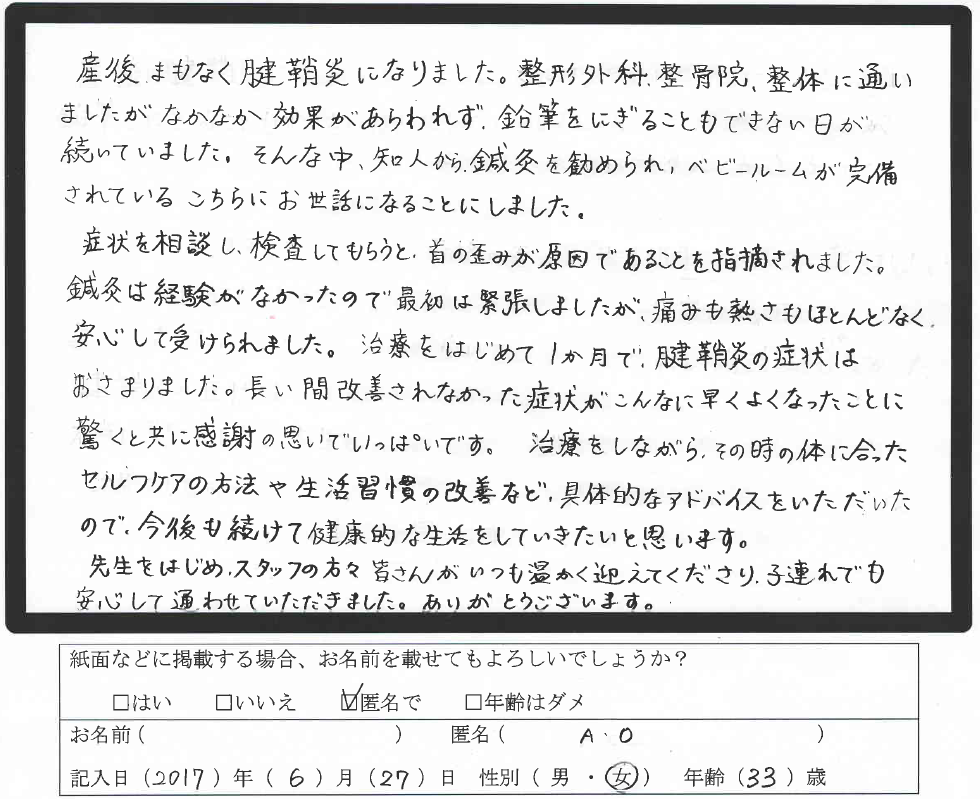 産後まもなく腱鞘炎になりました。整形外科、整骨院、整体に通い
ましたがなかなか効果があらわれず、鉛筆をにぎることもできない日が
続いていました。そんな中、知人から鍼灸を勧められ、ベビールームが完備
されているこちらにお世話になることにしました。
症状を相談し、検査してもらうと、首の歪みが原因であることを指摘されました。
鍼灸は経験がなかったので最初は緊張しましたが、痛みも熱さもほとんどなく、
安心して受けられました。治療をはじめて1か月で、腱鞘炎の症状は
おさまりました。長い間改善されなかった症状がこんなに早くよくなったことに
驚くと共に感謝の思いでいっぱいです。治療をしながら、その時の体に合った
セルフケアの方法や生活習慣の改善など、具体的なアドバイスをいただいた
ので、今後も続けて健康的な生活をしていきたいと思います。
先生をはじめ、スタッフの方々皆さんがいつも温かく迎えてくださり、子連れでも
安心して通わせていただきました。ありがとうございます。
紙面などに掲載する場合、お名前を載せてもよろしいでしょうか？
□はい □いいえ ☑匿名で □年齢はダメ
お名前（ ） 匿名（ A・O ）
記入日（2017）年（ 6 ）月（27）日 性別（ 男 ・ 女 ） 年齢（33）歳